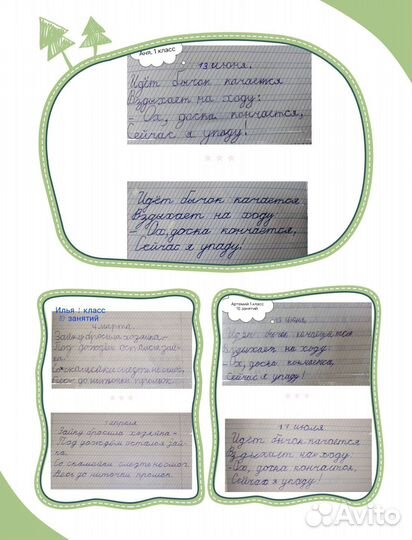 Аня, 1 класс
13 июня.
Идёт бычок качается
Вздыхает на ходу:
- Ох, доска кончается,
Сейчас я упаду!
Идёт бычок качается
Вздыхает на ходу
- Ох, доска кончается,
Сейчас я упаду!
Илья 1 класс
занятий
4 марта.
Зайку бросила хозяйка-
Под дождём остался зай-
ка.
Со скамейки слезть не смог,
до ниточки промок.
1 апреля
Зайку бросила хозяйка-
Под дождём остался зай-
ка.
Со скамейки слезть не смог
Весь до ниточки промок.
Артемий 1 класс
10 занятий
июня
бычок
Вздыхает на ходу
- Ох, доска
Сейчас я упаду!
17 июля
Идёт бычок качается
Вздыхает на ходу:
-Ох, доска кончается,
Сейчас я упаду!
Avito